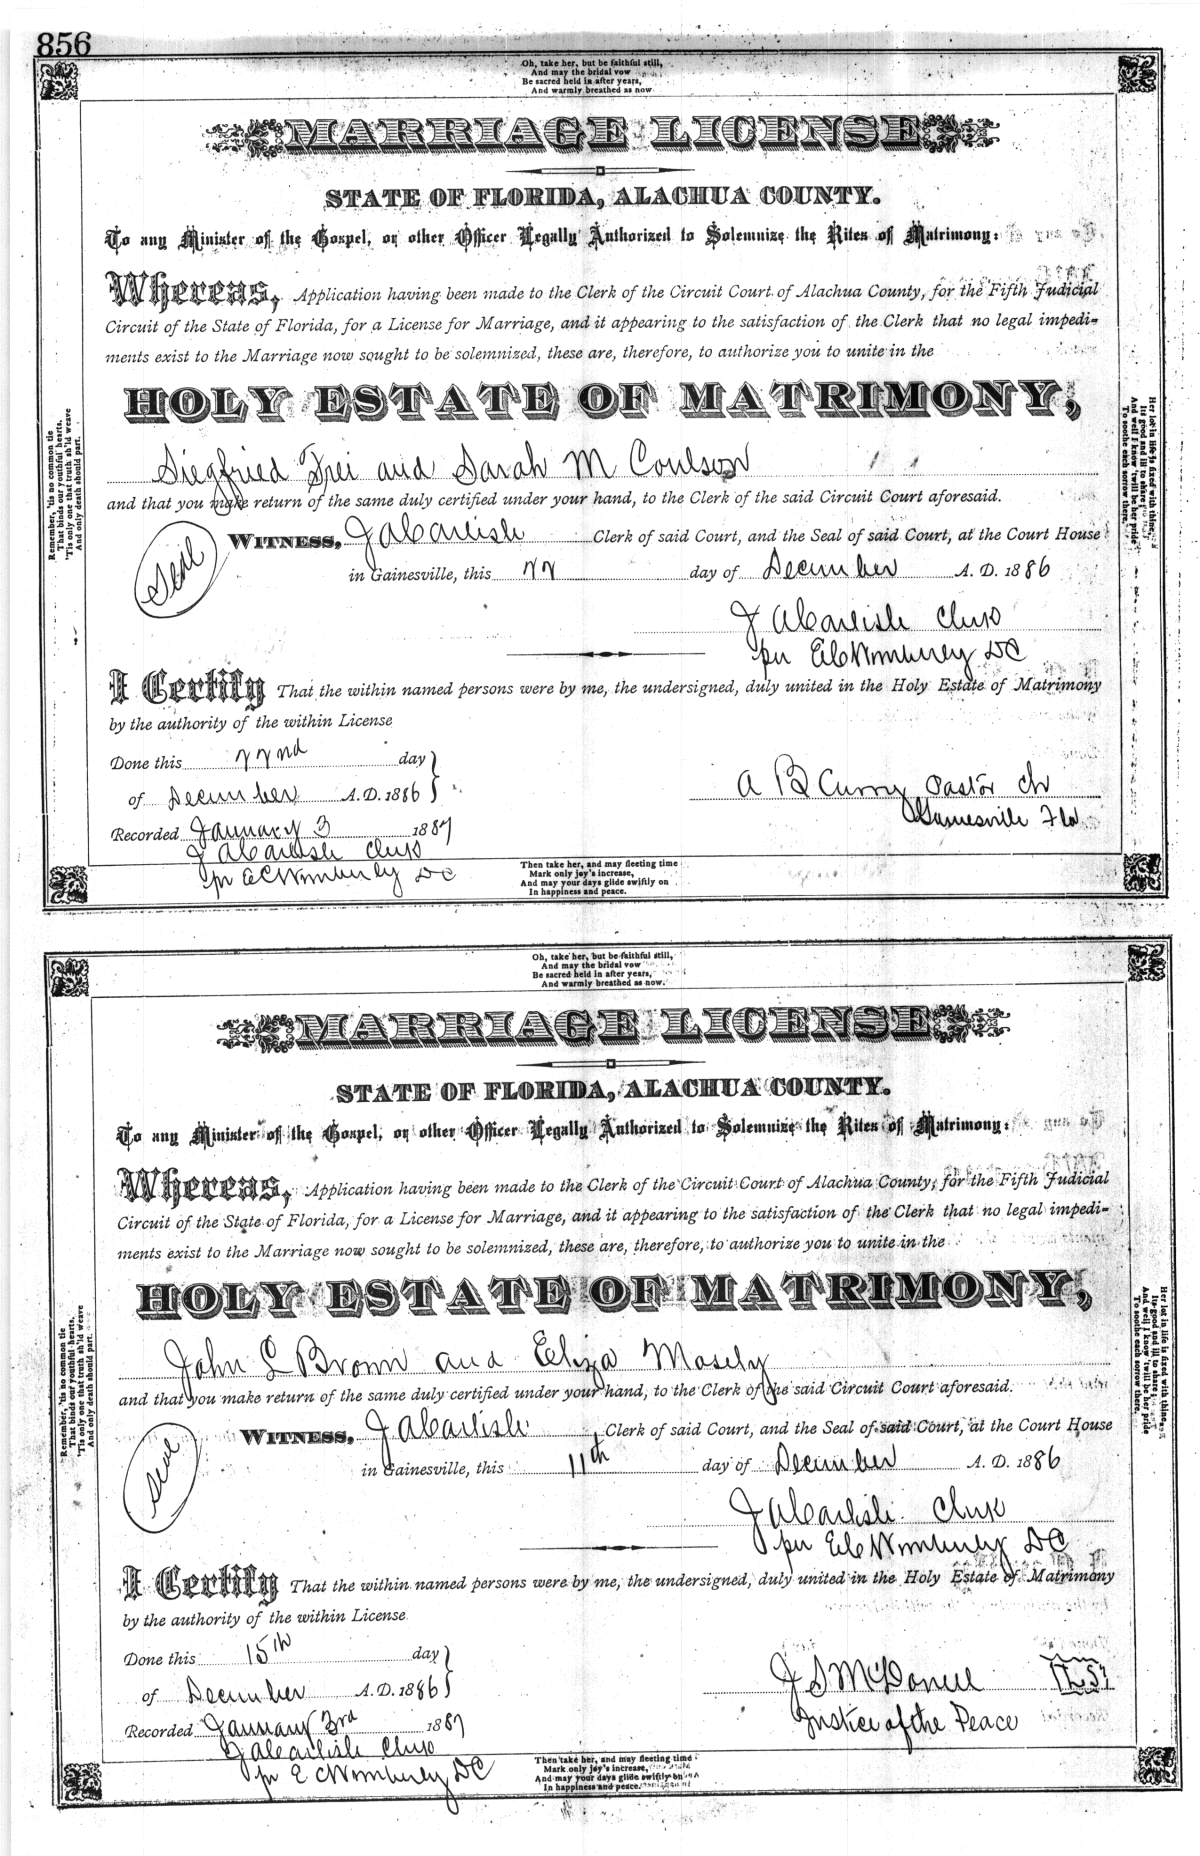 856
Oh, take her, but be faithful still,
And may the bridal vow
Be sacred held in after years,
And warmly breathed as now
MARRIAGE LICENSE
STATE OF FLORIDA, ALACHUA COUNTY.
To any Minister of the Gospel, or other Officer Legally Authorized to Solemnize the Rites of Matrimony:
Whereas, Application having been made to the Clerk of the Circuit Court of Alachua County, for the Fifth Judicial
Circuit of the State of Florida, for a License for Marriage, and it appearing to the satisfaction of the Clerk that no legal impedi-
ments exist to the Marriage now sought to be solemnized, these are, therefore, to authorize you to unite in the
HOLY ESTATE OF MATRIMONY,
Siegfried Frei and Sarah M Coulson
and that you make return of the same duly certified under your hand, to the Clerk of the said Circuit Court aforesaid.
Seal
WITNESS, J A Carlisle Clerk of said Court, and the Seal of said Court, at the Court House
in Gainesville, this 22 day of December A. D. 1886
J A Carlisle Clerk
per E C Wimberley DC
I Certify That the within named persons were by me, the undersigned, duly united in the Holy Estate of Matrimony
by the authority of the within License
Done this 22nd day
of December A.D. 1886
A B Curry Pastor Ch
Gainesville Fla
Recorded January 3 1887
J A Carlisle Clerk
pr E C Wimberley DC
Remember, 'tis no common tie
That binds your youthful hearts,
'Tis only one that truth sh'ld weave
And only death should part.
Her lot in life is fixed with thine,
Its good and ill to share
And well I know 'twill be her pride
To soothe each sorrow there.
Then take her, and may fleeting time
Mark only joy's increase,
And may your days glide swiftly on
In happiness and peace.
Oh, take her, but be faithful still,
And may the bridal vow
Be sacred held in after years,
And warmly breathed as now.
MARRIAGE LICENSE
STATE OF FLORIDA, ALACHUA COUNTY.
To any Minister of the Gospel, or other Officer Legally Authorized to Solemnize the Rites of Matrimony:
Whereas, Application having been made to the Clerk of the Circuit Court of Alachua County, for the Fifth Judicial
Circuit of the State of Florida, for a License for Marriage, and it appearing to the satisfaction of the Clerk that no legal impedi-
ments exist to the Marriage now sought to be solemnized, these are, therefore, to authorize you to unite in the
HOLY ESTATE OF MATRIMONY,
John L Brown and Eliza Mosely
and that you make return of the same duly certified under your hand, to the Clerk of the said Circuit Court aforesaid.
Seal
WITNESS, J A Carlisle Clerk of said Court, and the Seal of said Court, at the Court House
in Gainesville, this 11th day of December A. D. 1886
J A Carlisle Clerk
per E C Wimberley DC
I Certify That the within named persons were by me, the undersigned, duly united in the Holy Estate of Matrimony
by the authority of the within License
Done this 15th day
of December A.D. 1886
J S McDonell LS
Justice of the Peace
Recorded January 3rd 1887
J A Carlisle Clerk
pr E C Wimberley DC
Remember, 'tis no common tie
That binds your youthful hearts,
'Tis only one that truth sh'ld weave
And only death should part.
Her lot in life is fixed with thine,
Its good and ill to share;
And well I know 'twill be her pride
To soothe each sorrow there.
Then take her, and may fleeting time
Mark only joy's increase,
And may your days glide swiftly on
In happiness and peace.